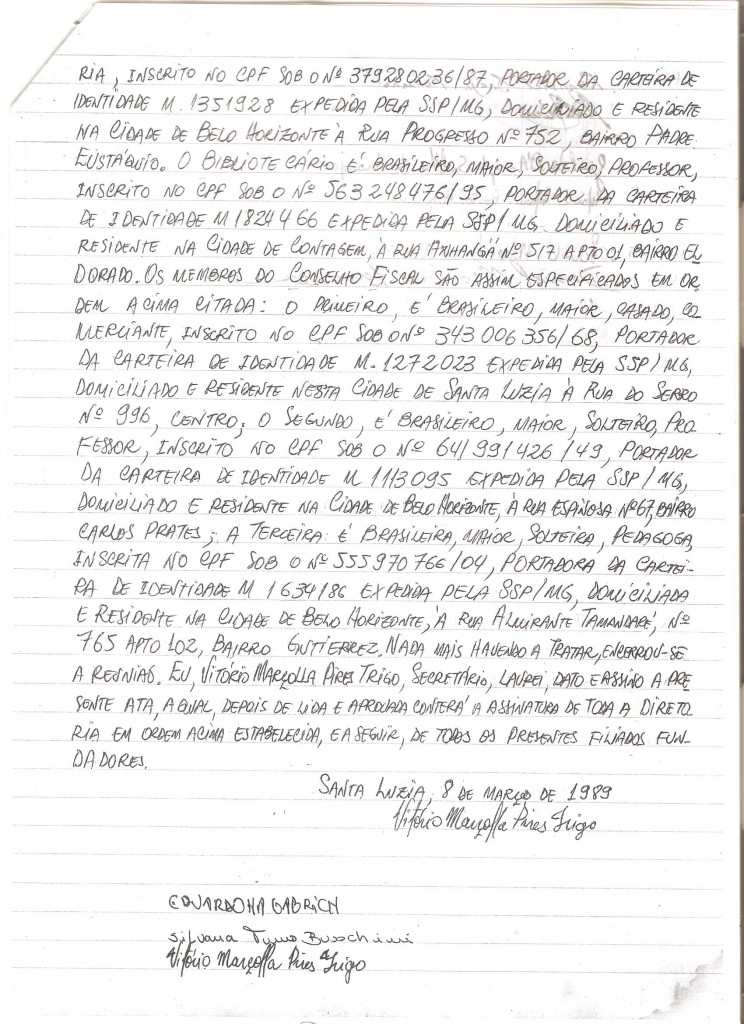 RIA, INSCRITO NO CPF SOB O Nº 379280236/87, PORTADOR DA CARTEIRA DE
IDENTIDADE M. 1351928 EXPEDIDA PELA SSP/MG, DOMICILIADO E RESIDENTE
NA CIDADE DE BELO HORIZONTE À RUA PROGRESSO Nº 752, BAIRRO PADRE
EUSTÁQUIO. O BIBLIOTECÁRIO É BRASILEIRO, MAIOR, SOLTEIRO, PROFESSOR,
INSCRITO NO CPF SOB O Nº 563248476/95, PORTADOR DA CARTEIRA
DE IDENTIDADE M 1824466 EXPEDIDA PELA SSP/MG. DOMICILIADO E
RESIDENTE NA CIDADE DE CONTAGEM, À RUA ANHANGÁ Nº 517 APTO 01, BAIRRO EL
DORADO. OS MEMBROS DO CONSELHO FISCAL SÃO ASSIM ESPECIFICADOS EM OR,
DEM ACIMA CITADA: O PRIMEIRO, É BRASILEIRO, MAIOR, CASADO, CO
MERCIANTE, INSCRITO NO CPF SOB O Nº 343006356/68, PORTADOR
DA CARTEIRA DE IDENTIDADE M. 1272023 EXPEDIDA PELA SSP/MG,
DOMICILIADO E RESIDENTE NESTA CIDADE DE SANTA LUZIA À RUA DO SERRO
Nº 996, CENTRO; O SEGUNDO, É BRASILEIRO, MAIOR, SOLTEIRO, PRO
FESSOR, INSCRITO NO CPF SOB O Nº 641991426/49, PORTADOR
DA CARTEIRA DE IDENTIDADE M 1113095 EXPEDIDA PELA SSP/MG,
DOMICILIADO E RESIDENTE NA CIDADE DE BELO HORIZONTE, À RUA ESPINOSA Nº 67, BAIRRO
CARLOS PRATES; A TERCEIRA É BRASILEIRA, MAIOR, SOLTEIRA, PEDAGOGA,
INSCRITA NO CPF SOB O Nº 555970766/04, PORTADORA DA CARTEI-
RA DE IDENTIDADE M 1634186 EXPEDIDA PELA SSP/MG, DOMICILIADA
E RESIDENTE NA CIDADE DE BELO HORIZONTE, À RUA ALMIRANTE TAMANDARÉ, Nº
765 APTO 102, BAIRRO GUTIERREZ. NADA MAIS HAVENDO A TRATAR, ENCERROU-SE
A REUNIÃO. EU, VITÓRIO MARÇOLLA PIRES TRIGO, SECRETÁRIO, LAVREI, DATO E ASSINO A PRE
SENTE ATA, A QUAL, DEPOIS DE LIDA E APROVADA CONTERÁ A ASSINATURA DE TODA A DIRETO
RIA EM ORDEM ACIMA ESTABELECIDA, E A SEGUIR, DE TODOS OS PRESENTES FILIADOS FUN-
DADORES.
SANTA LUZIA, 8 DE MARÇO DE 1989
Vitório Marçolla Pires Trigo
EDUARDO GABRICH
Silvana
Vitório Marçolla Pires Trigo